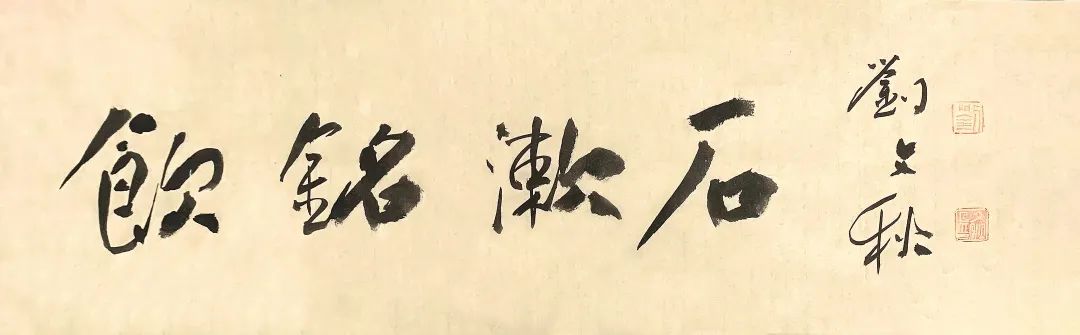 飲銘漱石
劉文秋